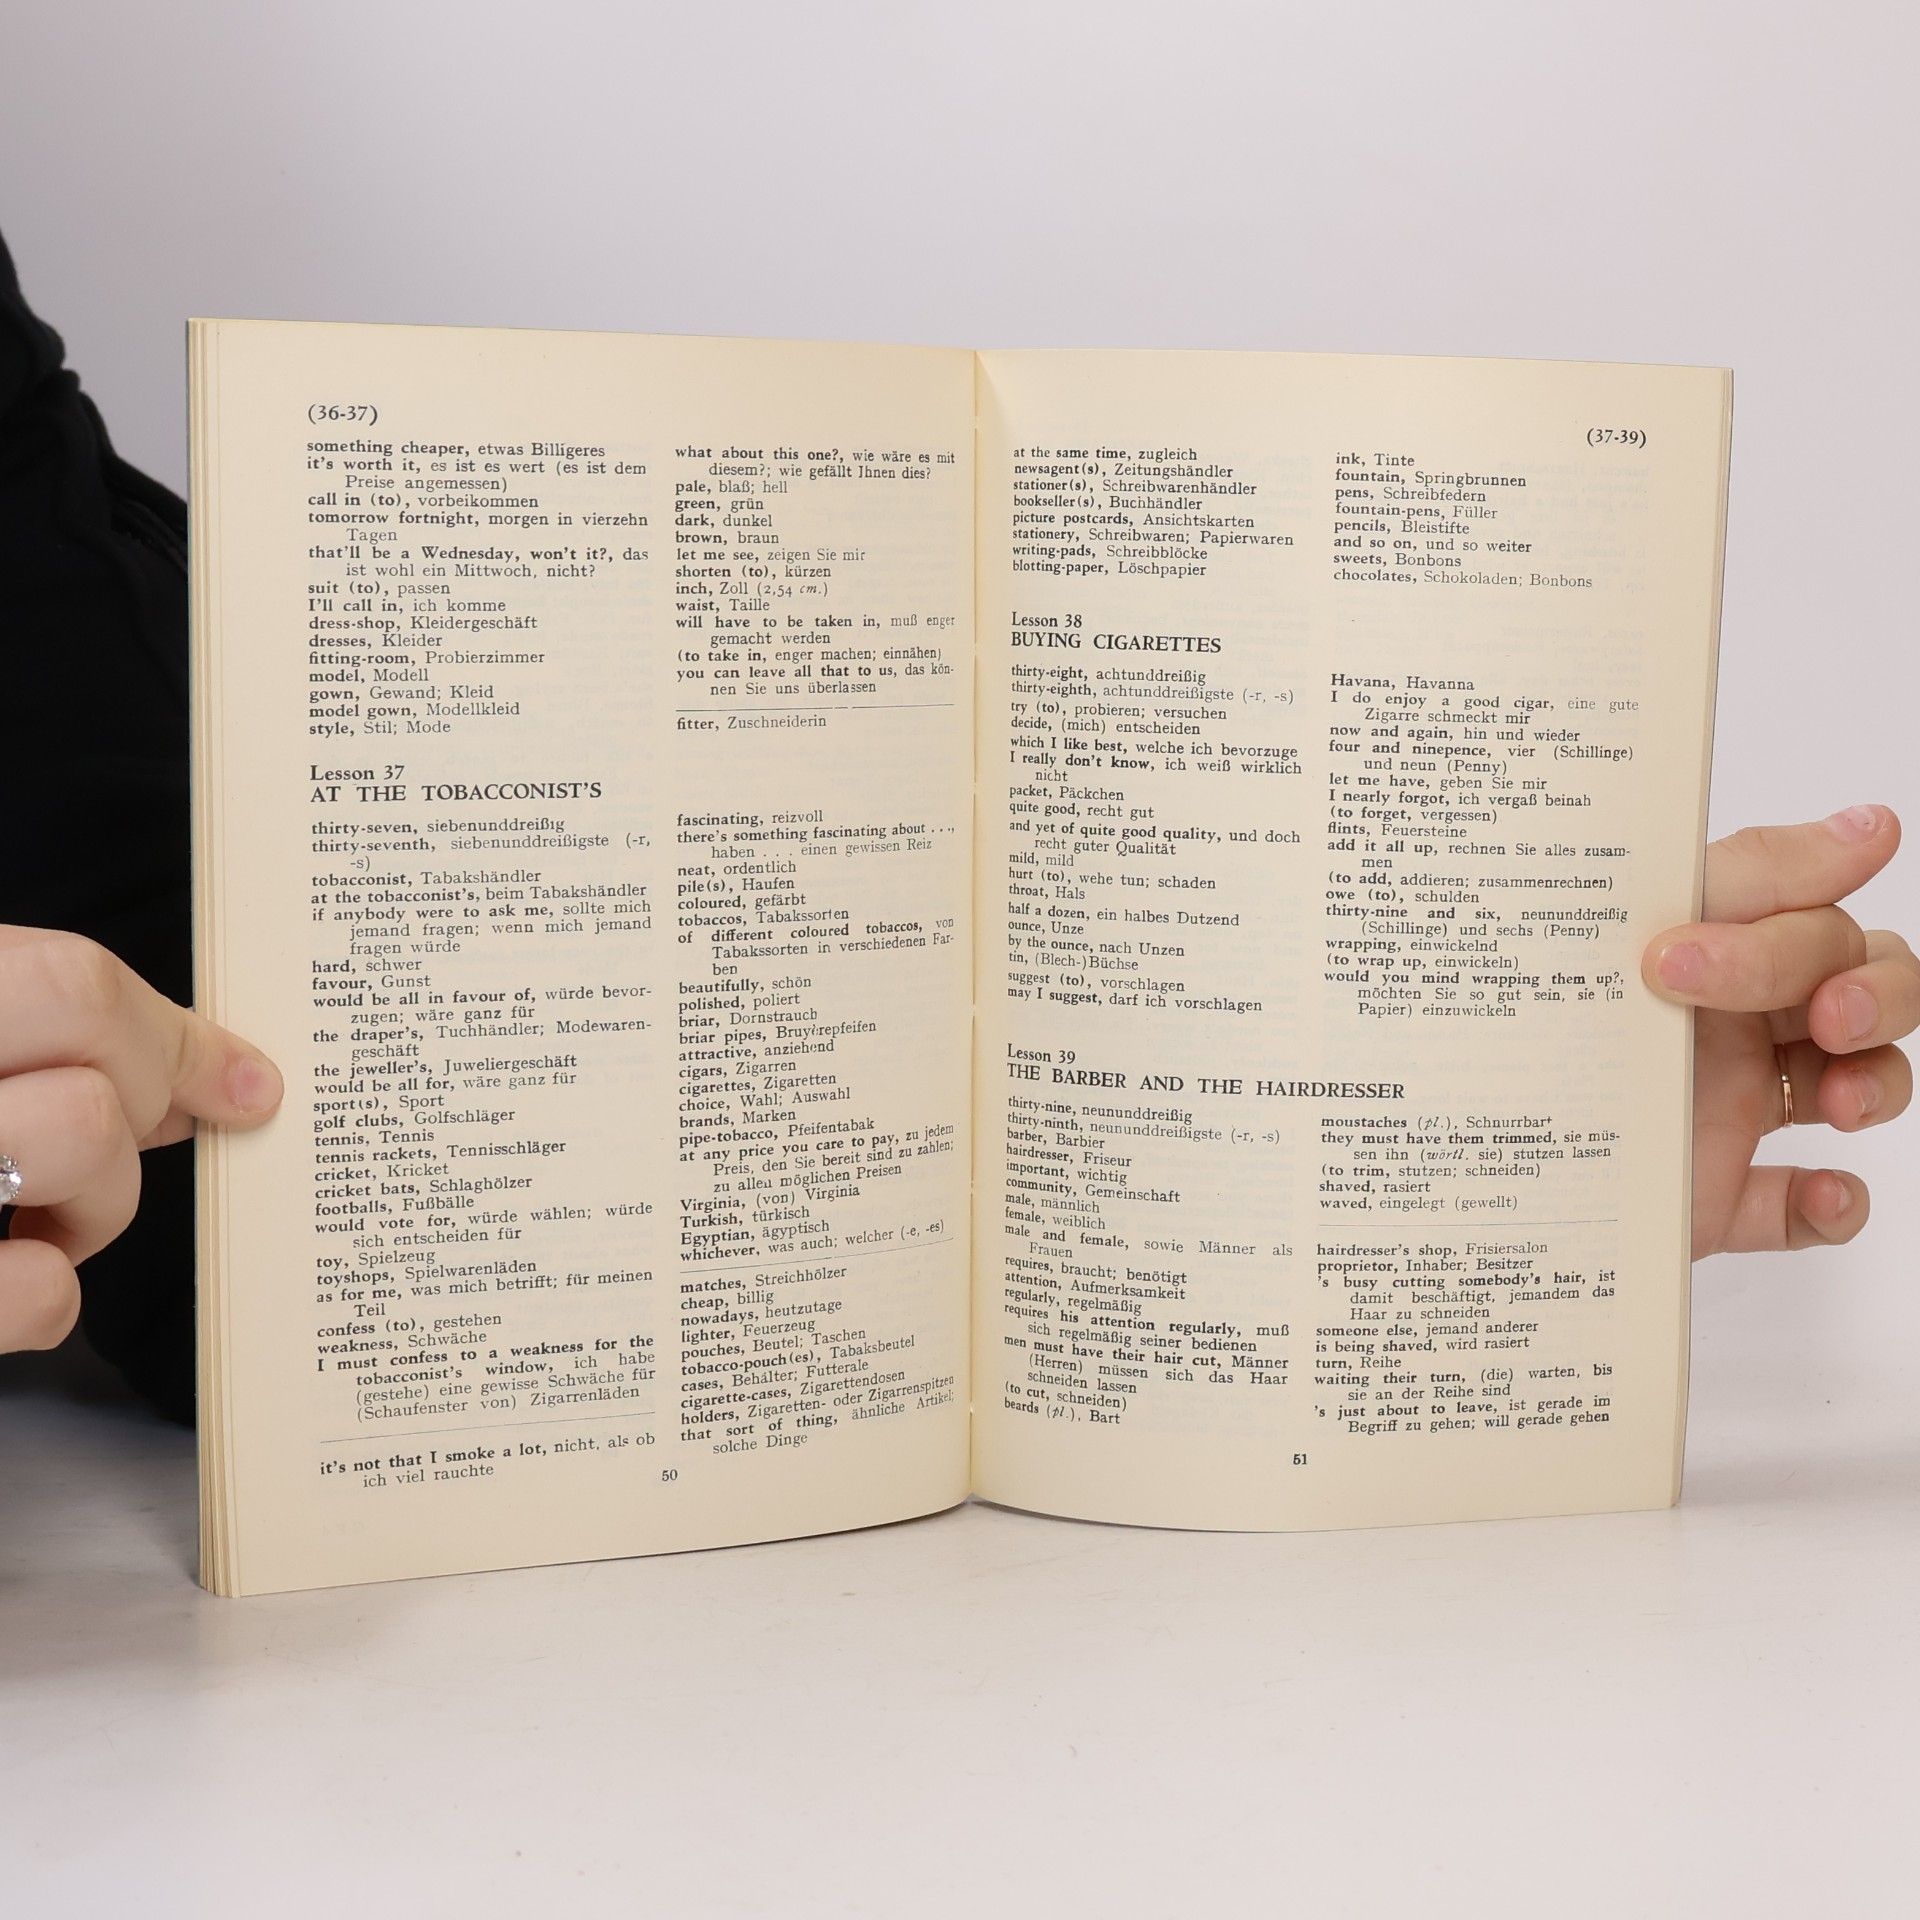 (36-37)
something cheaper, etwas Billigeres
it's worth it, es ist es wert (es ist dem
Preise angemessen)
call in (to), vorbeikommen
tomorrow fortnight, morgen in vierzehn
Tagen
that'll be a Wednesday, won't it?, das
ist wohl ein Mittwoch, nicht?
suit (to), passen
I'll call in, ich komme
dress-shop, Kleidergeschäft
dresses, Kleider
fitting-room, Probierzimmer
model, Modell
gown, Gewand; Kleid
model gown, Modellkleid
style, Stil; Mode
what about this one?, wie wäre es mit
diesem?; wie gefällt Ihnen dies?
pale, blaß; hell
green, grün
dark, dunkel
brown, braun
let me see, zeigen Sie mir
shorten (to), kürzen
inch, Zoll (2,54 cm.)
waist, Taille
will have to be taken in, muß enger
gemacht werden
(to take in, enger machen; einnähen)
you can leave all that to us, das kön-
nen Sie uns überlassen
fitter, Zuschneiderin
Lesson 37
AT THE TOBACCONIST'S
thirty-seven, siebenunddreißig
thirty-seventh, siebenunddreißigste (-r,
-s)
tobacconist, Tabakshändler
at the tobacconist's, beim Tabakshändler
if anybody were to ask me, sollte mich
jemand fragen; wenn mich jemand
fragen würde
hard, schwer
favour, Gunst
would be all in favour of, würde bevor-
zugen; wäre ganz für
the draper's, Tuchhändler; Modewaren-
geschäft
the jeweller's, Juweliergeschäft
would be all for, wäre ganz für
sport(s), Sport
golf clubs, Golfschläger
tennis, Tennis
tennis rackets, Tennisschläger
cricket, Kricket
cricket bats, Schlaghölzer
footballs, Fußbälle
would vote for, würde wählen; würde
sich entscheiden für
toy, Spielzeug
toyshops, Spielwarenläden
as for me, was mich betrifft; für meinen
Teil
confess (to), gestehen
weakness, Schwäche
I must confess to a weakness for the
tobacconist's window, ich habe
(gestehe) eine gewisse Schwäche für
(Schaufenster von) Zigarrenläden
it's not that I smoke a lot, nicht, als ob
ich viel rauchte
fascinating, reizvoll
there's something fascinating about . . .,
haben . . . einen gewissen Reiz
neat, ordentlich
pile(s), Haufen
coloured, gefärbt
tobaccos, Tabakssorten
of different coloured tobaccos, von
Tabakssorten in verschiedenen Far-
ben
beautifully, schön
polished, poliert
briar, Dornstrauch
briar pipes, Bruyèrepfeifen
attractive, anziehend
cigars, Zigarren
cigarettes, Zigaretten
choice, Wahl; Auswahl
brands, Marken
pipe-tobacco, Pfeifentabak
at any price you care to pay, zu jedem
Preis, den Sie bereit sind zu zahlen;
zu allen möglichen Preisen
Virginia, (von) Virginia
Turkish, türkisch
Egyptian, ägyptisch
whichever, was auch; welcher (-e, -es)
matches, Streichhölzer
cheap, billig
nowadays, heutzutage
lighter, Feuerzeug
pouches, Beutel; Taschen
tobacco-pouch(es), Tabaksbeutel
cases, Behälter; Futterale
cigarette-cases, Zigarettendosen
holders, Zigaretten- oder Zigarrenspitzen
that sort of thing, ähnliche Artikel;
solche Dinge
50
(37-39)
at the same time, zugleich
newsagent(s), Zeitungshändler
stationer(s), Schreibwarenhändler
bookseller(s), Buchhändler
picture postcards, Ansichtskarten
stationery, Schreibwaren; Papierwaren
writing-pads, Schreibblöcke
blotting-paper, Löschpapier
ink, Tinte
fountain, Springbrunnen
pens, Schreibfedern
fountain-pens, Füller
pencils, Bleistifte
and so on, und so weiter
sweets, Bonbons
chocolates, Schokoladen; Bonbons
Lesson 38
BUYING CIGARETTES
thirty-eight, achtunddreißig
thirty-eighth, achtunddreißigste (-r, -s)
try (to), probieren; versuchen
decide, (mich) entscheiden
which I like best, welche ich bevorzuge
I really don't know, ich weiß wirklich
nicht
packet, Päckchen
quite good, recht gut
and yet of quite good quality, und doch
recht guter Qualität
mild, mild
hurt (to), wehe tun; schaden
throat, Hals
half a dozen, ein halbes Dutzend
ounce, Unze
by the ounce, nach Unzen
tin, (Blech-)Büchse
suggest (to), vorschlagen
may I suggest, darf ich vorschlagen
Havana, Havanna
I do enjoy a good cigar, eine gute
Zigarre schmeckt mir
now and again, hin und wieder
four and ninepence, vier (Schillinge)
und neun (Penny)
let me have, geben Sie mir
I nearly forgot, ich vergaß beinah
(to forget, vergessen)
flints, Feuersteine
add it all up, rechnen Sie alles zusam-
men
(to add, addieren; zusammenrechnen)
owe (to), schulden
thirty-nine and six, neununddreißig
(Schillinge) und sechs (Penny)
wrapping, einwickelnd
(to wrap up, einwickeln)
would you mind wrapping them up?,
möchten Sie so gut sein, sie (in
Papier) einzuwickeln
Lesson 39
THE BARBER AND THE HAIRDRESSER
thirty-nine, neununddreißig
thirty-ninth, neununddreißigste (-r, -s)
barber, Barbier
hairdresser, Friseur
important, wichtig
community, Gemeinschaft
male, männlich
female, weiblich
male and female, sowie Männer als
Frauen
requires, braucht; benötigt
attention, Aufmerksamkeit
regularly, regelmäßig
requires his attention regularly, muß
sich regelmäßig seiner bedienen
men must have their hair cut, Männer
(Herren) müssen sich das Haar
schneiden lassen
(to cut, schneiden)
beards (pl.), Bart
moustaches (pl.), Schnurrbart
they must have them trimmed, sie müs-
sen ihn (wörtl. sie) stutzen lassen
(to trim, stutzen; schneiden)
shaved, rasiert
waved, eingelegt (gewellt)
hairdresser's shop, Frisiersalon
proprietor, Inhaber; Besitzer
's busy cutting somebody's hair, ist
damit beschäftigt, jemandem das
Haar zu schneiden
someone else, jemand anderer
is being shaved, wird rasiert
turn, Reihe
waiting their turn, (die) warten, bis
sie an der Reihe sind
's just about to leave, ist gerade im
Begriff zu gehen; will gerade gehen
51